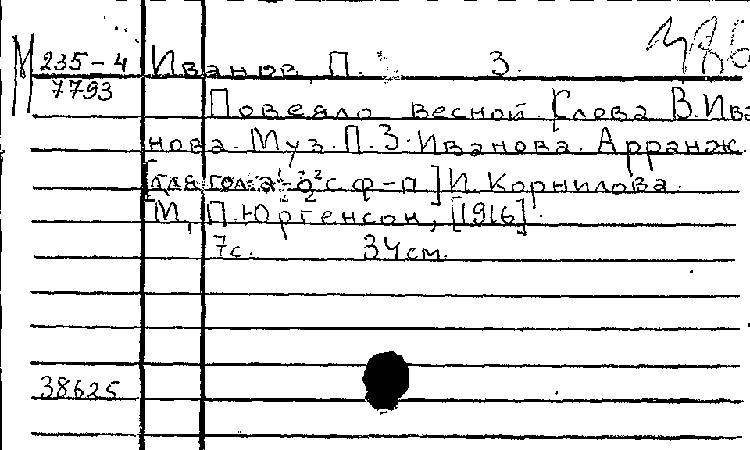 М 235-4 Иванов, П. З.
7793
Повеяло весной. Слова В. Ива
нова. Муз. П.З. Иванова. Арранж.
[для гол. с ф-п] И. Корнилова.
М., П. Юргенсон, [1916].
7с. 34см.
38625